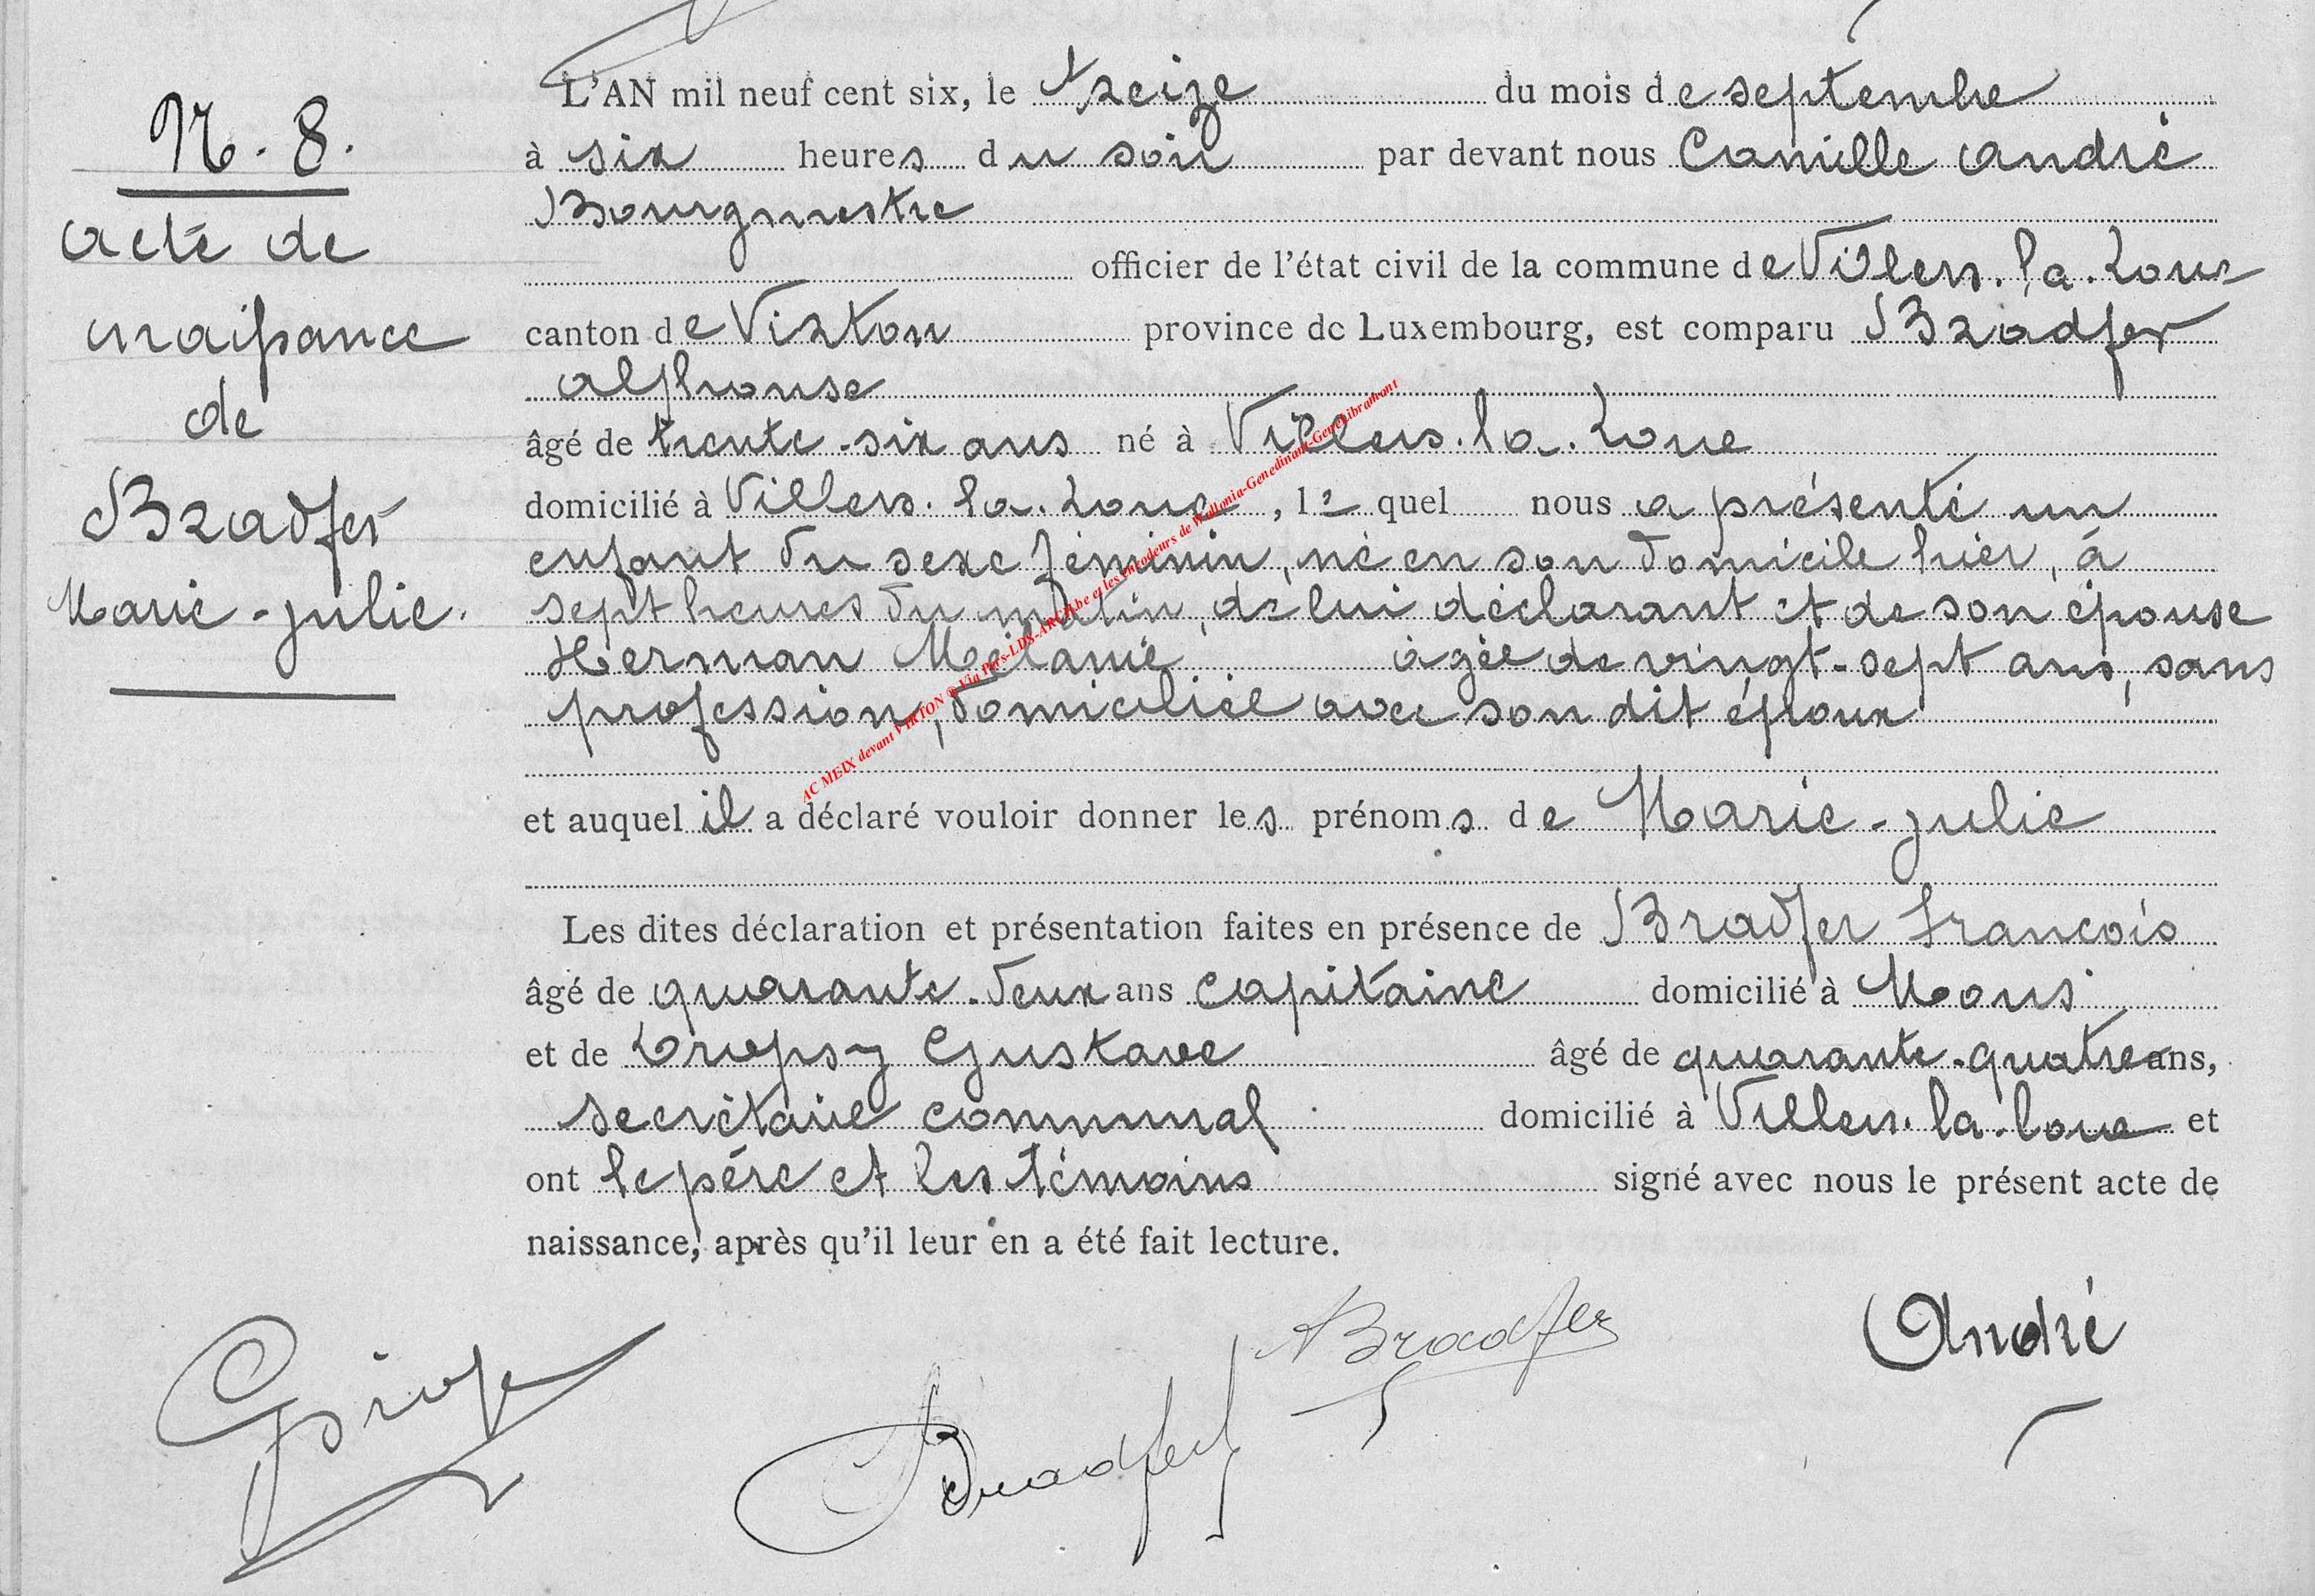 N. 8.
acte de
naissance
de
Bradfer
Marie-julie.
L'AN mil neuf cent six, le treize du mois de septembre
à six heures du soir par devant nous Camille andré
Bourgmestre
officier de l'état civil de la commune de Villers-la-Loue
canton de Virton province de Luxembourg, est comparu Bradfer
alphonse
âgé de trente-six ans né à Villers-la-Loue
domicilié à Villers-la-Loue, lequel nous a présenté un
enfant du sexe féminin, né en son domicile hier, à
sept heures du matin, de lui déclarant et de son épouse
Herman Mélanie âgée de vingt-sept ans, sans
profession, domiciliée avec son dit époux
et auquel il a déclaré vouloir donner les prénoms de Marie-julie
Les dites déclaration et présentation faites en présence de Bradfer francois
âgé de quarante-deux ans capitaine domicilié à Mons
et de Gustave âgé de quarante-quatre ans,
secrétaire communal domicilié à Villers-la-loue et
ont le père et les témoins signé avec nous le présent acte de
naissance, après qu'il leur en a été fait lecture.
Bradfer
André
Bradfer
AC MEIX devant VIRTON @ Via Pers-LDS-ARCH.be et les encodeurs de Wallonia-Genedinant-GeneLibramont